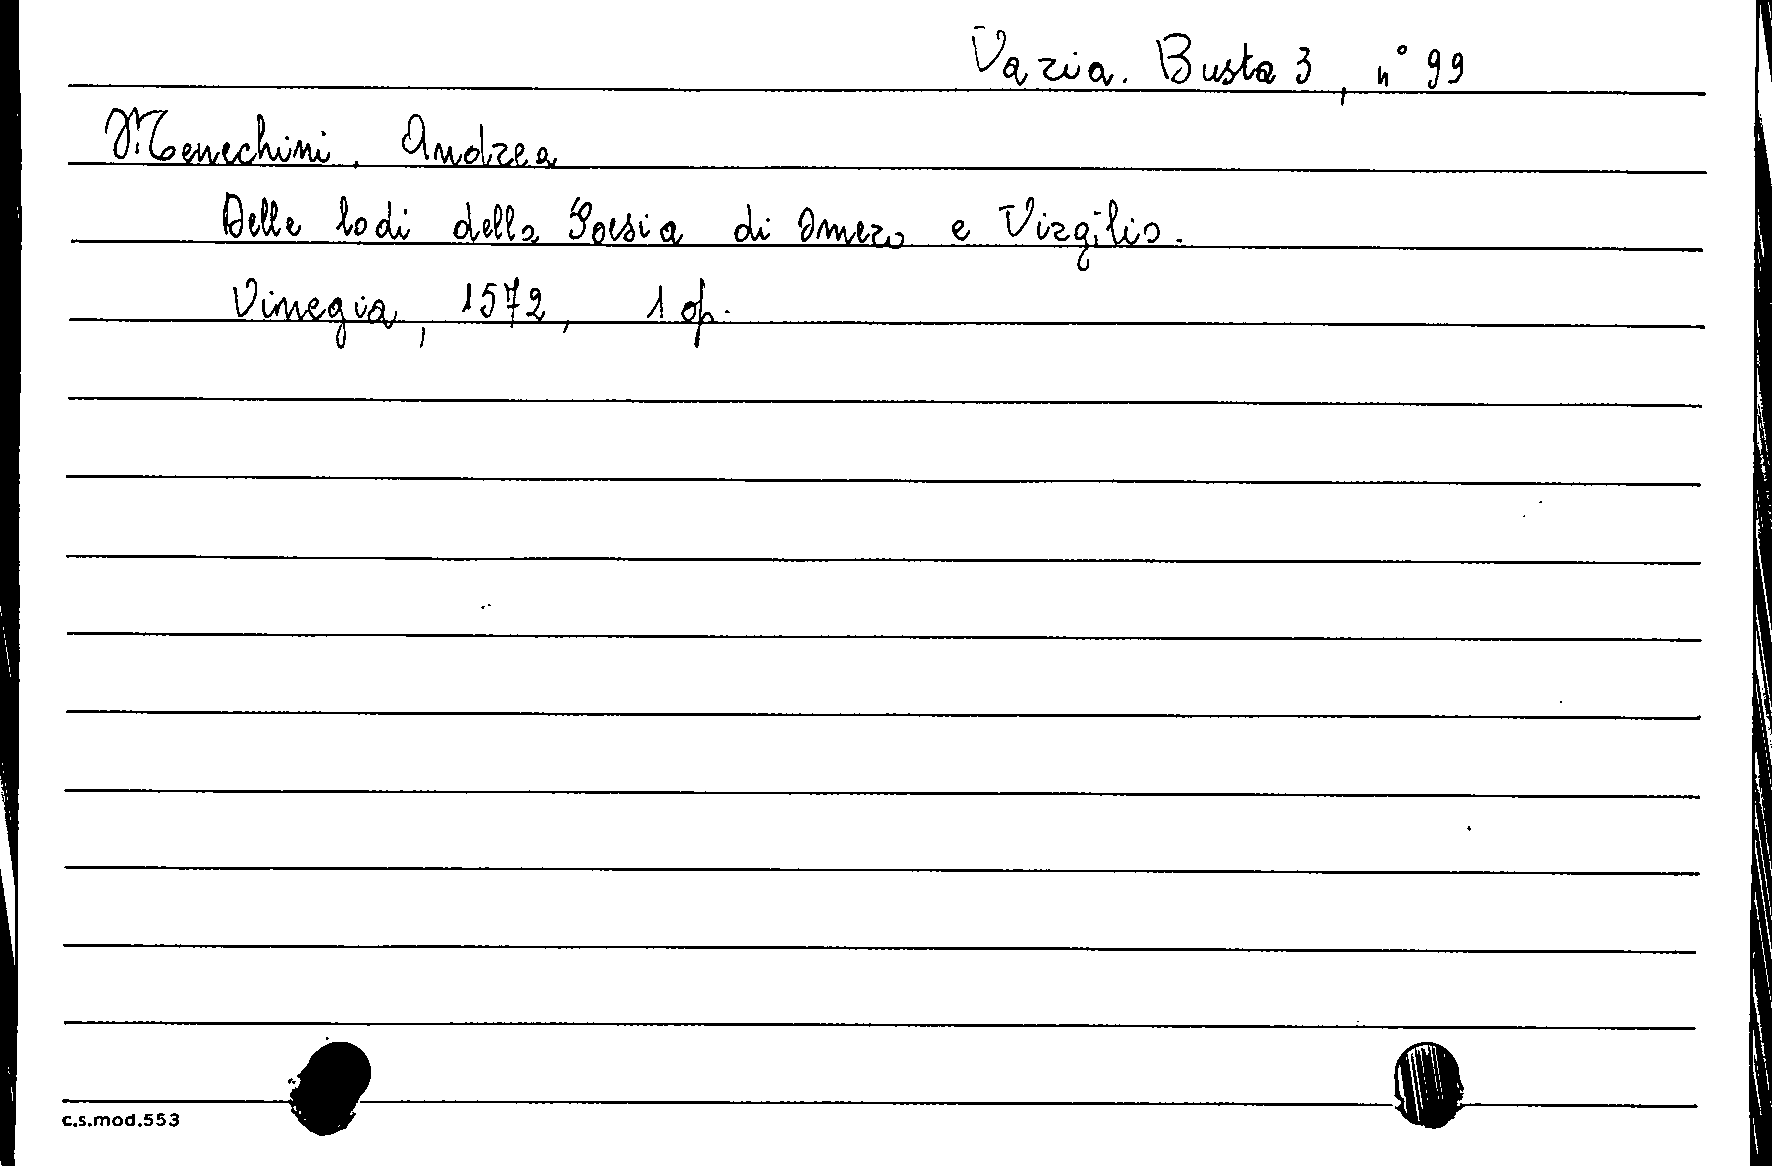 Varia. Busta 3, n° 99
Menechini, Andrea
Delle lodi della Poesia di Omero e Virgilio.
Vinegia, 1572, 1 op.
c.s.mod.553